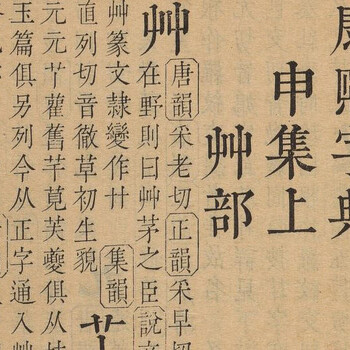 康熙字典
申集上
艸部
艸
唐韻采老切正韻采早切
在野則曰艸茅之臣說文
集韻
艸篆文隷變作廾
直列切音徹草初生貌
元元艹雚舊芊莧芺夔俱从
玉篇俱另列今从正字通入艸